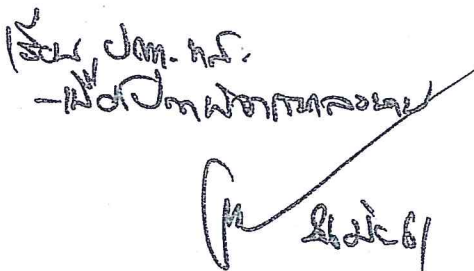 เรียน ปกท. ทส.
- เพื่อโปรดพิจารณาลงนาม
มิ.ย. 61